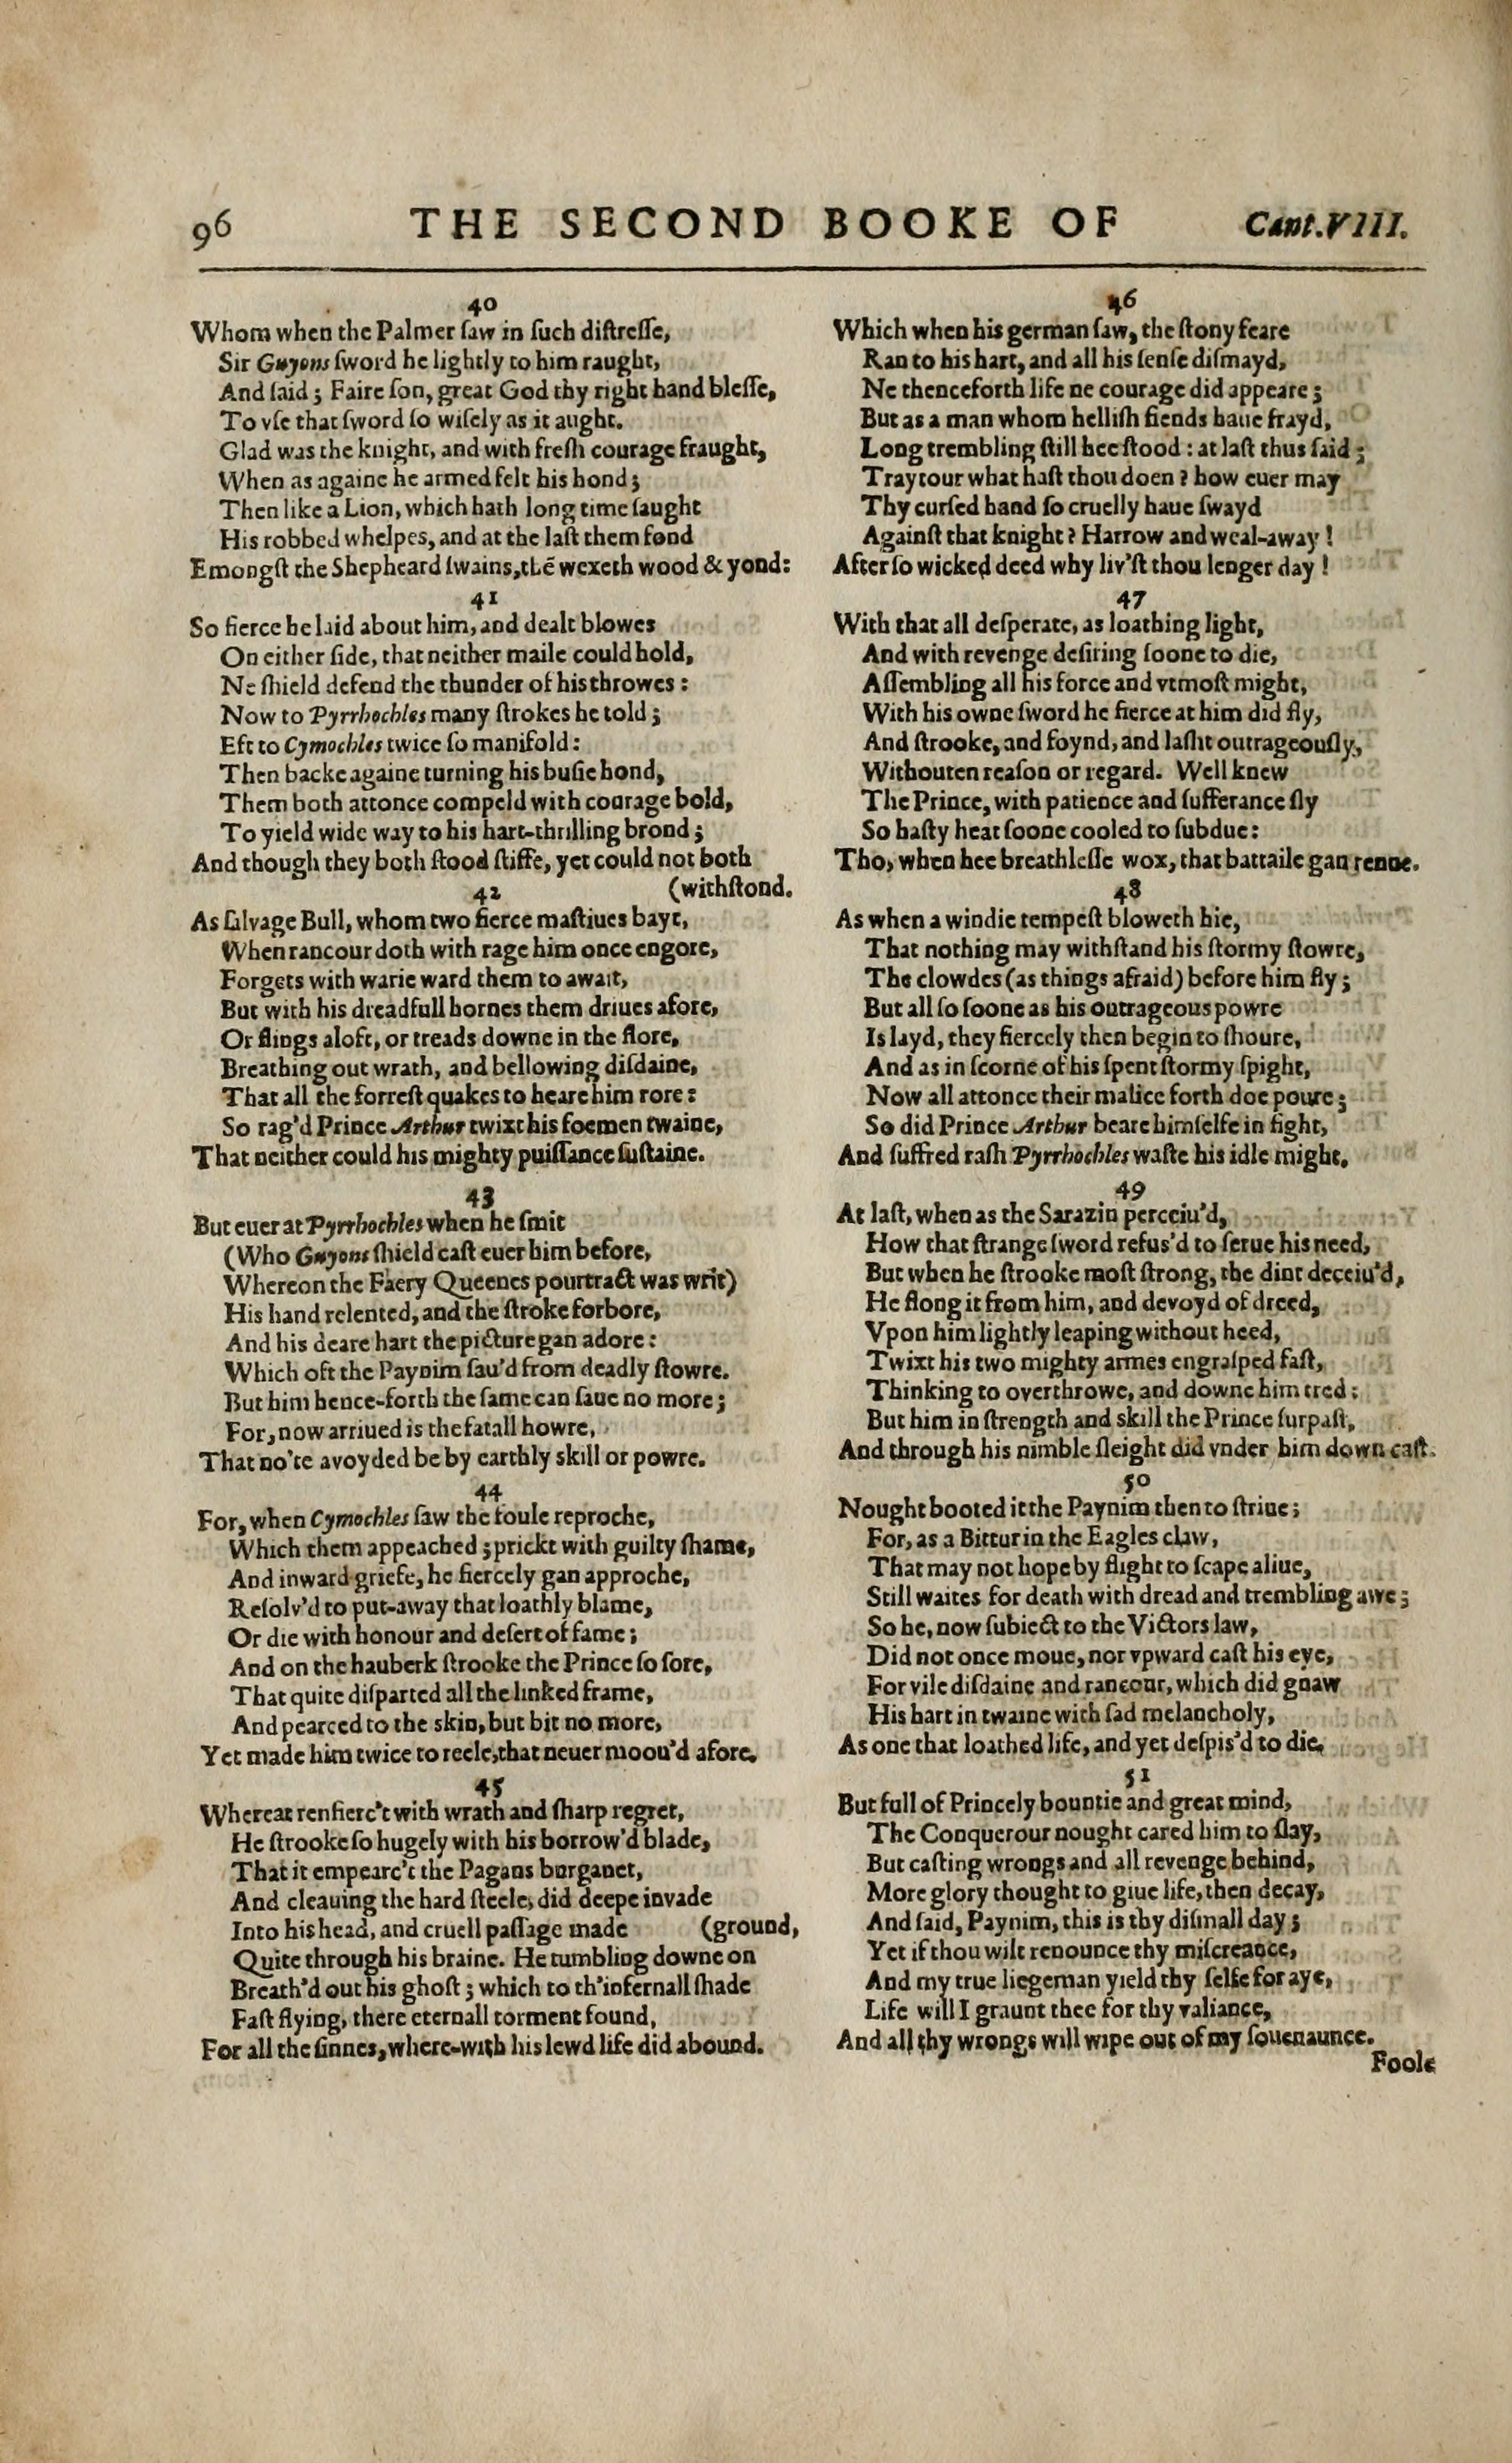 96 THE SECOND BOOKE OF Cant.VIII.
40
Whom when the Palmer ſaw in ſuch diſtreſſe,
Sir Guyons ſword he lightly to him raught,
And ſaid; Faire ſon, great God thy right hand bleſſe,
To vſe that ſword ſo wiſely as it aught.
Glad was the knight, and with freſh courage fraught,
When as againe he armed felt his hond;
Then like a Lion, which hath long time ſaught
His robbed whelpes, and at the laſt them fond
Emongſt the Shepheard ſwains, thē wexeth wood & yond:
41
So fierce he laid about him, and dealt blowes
On either ſide, that neither maile could hold,
Ne ſhield defend the thunder of his throwes:
Now to Pyrrhochles many ſtrokes he told;
Eft to Cymochles twice ſo manifold:
Then backe againe turning his buſie hond,
Them both attonce compeld with courage bold,
To yield wide way to his hart-thrilling brond;
And though they both ſtood ſtiffe, yet could not both
(withſtond.
42
As ſalvage Bull, whom two fierce maſtiues bayt,
When rancour doth with rage him once engore,
Forgets with warie ward them to await,
But with his dreadfull hornes them driues afore,
Or flings aloft, or treads downe in the flore,
Breathing out wrath, and bellowing diſdaine,
That all the forreſt quakes to heare him rore:
So rag'd Prince Arthur twixt his foemen twaine,
That neither could his mighty puiſſance ſuſtaine.
43
But euer at Pyrrhochles when he ſmit
(Who Guyons ſhield caſt euer him before,
Whereon the Faery Queenes pourtract was writ)
His hand relented, and the ſtroke forbore,
And his deare hart the picture gan adore:
Which oft the Paynim ſau'd from deadly ſtowre.
But him hence-forth the ſame can ſaue no more;
For, now arriued is the fatall howre,
That no'te avoyded be by earthly skill or powre.
44
For, when Cymochles ſaw the foule reproche,
Which them appeached; prickt with guilty ſhame,
And inward griefe, he fiercely gan approche,
Reſolv'd to put-away that loathly blame,
Or die with honour and deſert of fame;
And on the hauberk ſtrooke the Prince ſo ſore,
That quite diſparted all the linked frame,
And pearced to the skin, but bit no more,
Yet made him twice to reele, that neuer moou'd afore.
45
Whereat renfierc't with wrath and ſharp regret,
He ſtrooke ſo hugely with his borrow'd blade,
That it empearc't the Pagans burganet,
And cleauing the hard ſteele, did deepe invade
Into his head, and cruell paſſage made (ground,
Quite through his braine. He tumbling downe on
Breath'd out his ghoſt; which to th'infernall ſhade
Faſt flying, there eternall torment found,
For all the ſinnes, where-with his lewd life did abound.
46
Which when his german ſaw, the ſtony feare
Ran to his hart, and all his ſenſe diſmayd,
Ne thenceforth life ne courage did appeare;
But as a man whom helliſh fiends haue frayd,
Long trembling ſtill hee ſtood: at laſt thus ſaid;
Traytour what haſt thou doen? how euer may
Thy curſed hand ſo cruelly haue ſwayd
Againſt that knight? Harrow and weal-away!
After ſo wicked deed why liv'ſt thou lenger day!
47
With that all deſperate, as loathing light,
And with revenge deſiring ſoone to die,
Aſſembling all his force and vtmoſt might,
With his owne ſword he fierce at him did fly,
And ſtrooke, and foynd, and laſht outrageouſly,
Withouten reaſon or regard. Well knew
The Prince, with patience and ſufferance ſly
So haſty heat ſoone cooled to ſubdue:
Tho, when hee breathleſſe wox, that battaile gan renue.
48
As when a windie tempeſt bloweth hie,
That nothing may withſtand his ſtormy ſtowre,
The clowdes (as things afraid) before him fly;
But all ſo ſoone as his outrageous powre
Is layd, they fiercely then begin to ſhoure,
And as in ſcorne of his ſpent ſtormy ſpight,
Now all attonce their malice forth doe poure;
So did Prince Arthur beare himſelfe in fight,
And ſuffred raſh Pyrrhochles waſte his idle might.
49
At laſt, when as the Sarazin perceiu'd,
How that ſtrange ſword refus'd to ſerue his need,
But when he ſtrooke moſt ſtrong, the dint deceiu'd,
He flong it from him, and devoyd of dreed,
Vpon him lightly leaping without heed,
Twixt his two mighty armes engraſped faſt,
Thinking to overthrowe, and downe him tred:
But him in ſtrength and skill the Prince ſurpaſt,
And through his nimble ſleight did vnder him down caſt.
50
Nought booted it the Paynim then to ſtriue;
For, as a Bittur in the Eagles claw,
That may not hope by flight to ſcape aliue,
Still waites for death with dread and trembling awe;
So he, now ſubiect to the Victors law,
Did not once moue, nor vpward caſt his eye,
For vile diſdaine and rancour, which did gnaw
His hart in twaine with ſad melancholy,
As one that loathed life, and yet deſpis'd to die.
51
But full of Princely bountie and great mind,
The Conquerour nought cared him to ſlay,
But caſting wrongs and all revenge behind,
More glory thought to giue life, then decay,
And ſaid, Paynim, this is thy diſmall day;
Yet if thou wilt renounce thy miſcreance,
And my true liegeman yield thy ſelfe for aye,
Life will I graunt thee for thy valiance,
And all thy wrongs will wipe out of my ſouenaunce.
Foole